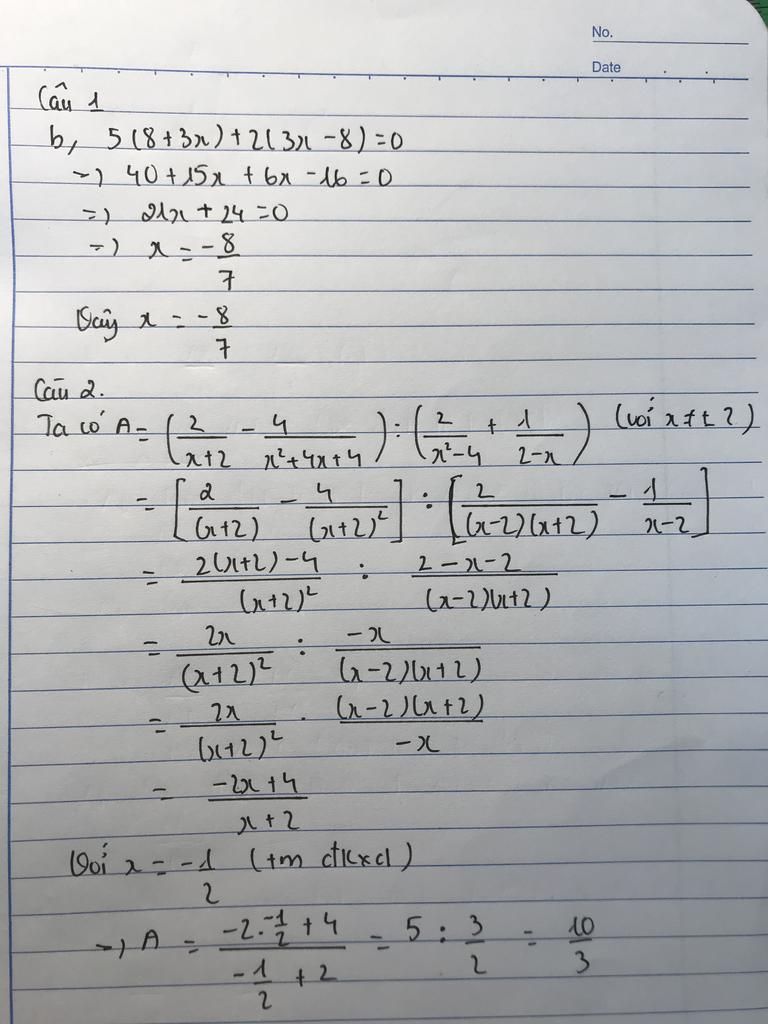 No.
Date
Câu 1
b, 5(8+3x)+2(3x-8)=0
=) 40+15x+6x-16=0
=) 21x+24=0
=) x = -8/7
Vậy x = -8/7
Câu 2.
Ta có A = (2/(x+2) - 4/(x²+4x+4)) : (2/(x²-4) + 1/(2-x)) (với x ≠ ± 2)
= [2/(x+2) - 4/(x+2)²] : [2/((x-2)(x+2)) - 1/(x-2)]
= (2(x+2)-4)/(x+2)² : (2-x-2)/((x-2)(x+2))
= 2x/(x+2)² : -x/((x-2)(x+2))
= 2x/(x+2)² . ((x-2)(x+2))/-x
= (-2x+4)/(x+2)
Với x = -1/2 (tm đkxđ)
=) A = (-2.-1/2+4)/(-1/2+2) = 5 : 3/2 = 10/3